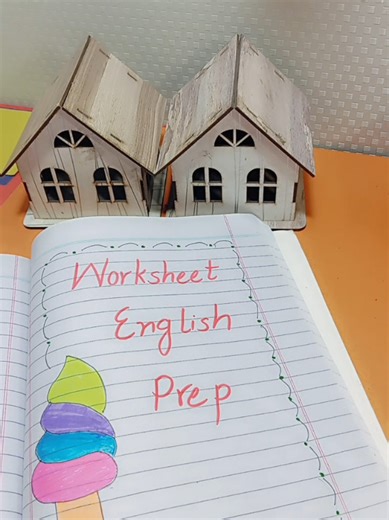 Worksheet
English
Prep